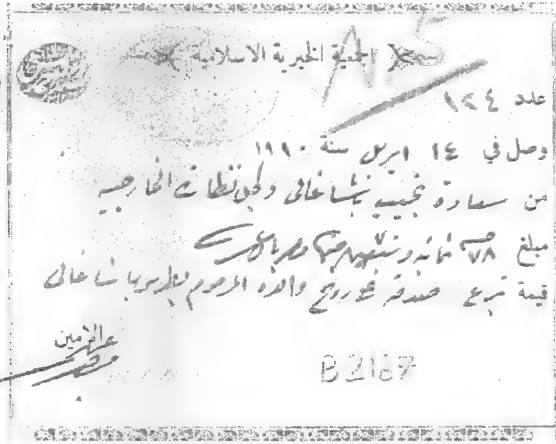 الجمعية الخيرية الاسلامية
A.5
عدد ١٢٤
وصل في ١٤ ابريل سنة ١٩١٠
من سعادة نجيب باشا غالى وكيل نظارة الخارجيه
مبلغ ٧٨ ثمانيه وسبعين
قيمة تبرع صدقة على روح والده المرحوم بطرس باشا غالى
امين
B 2167